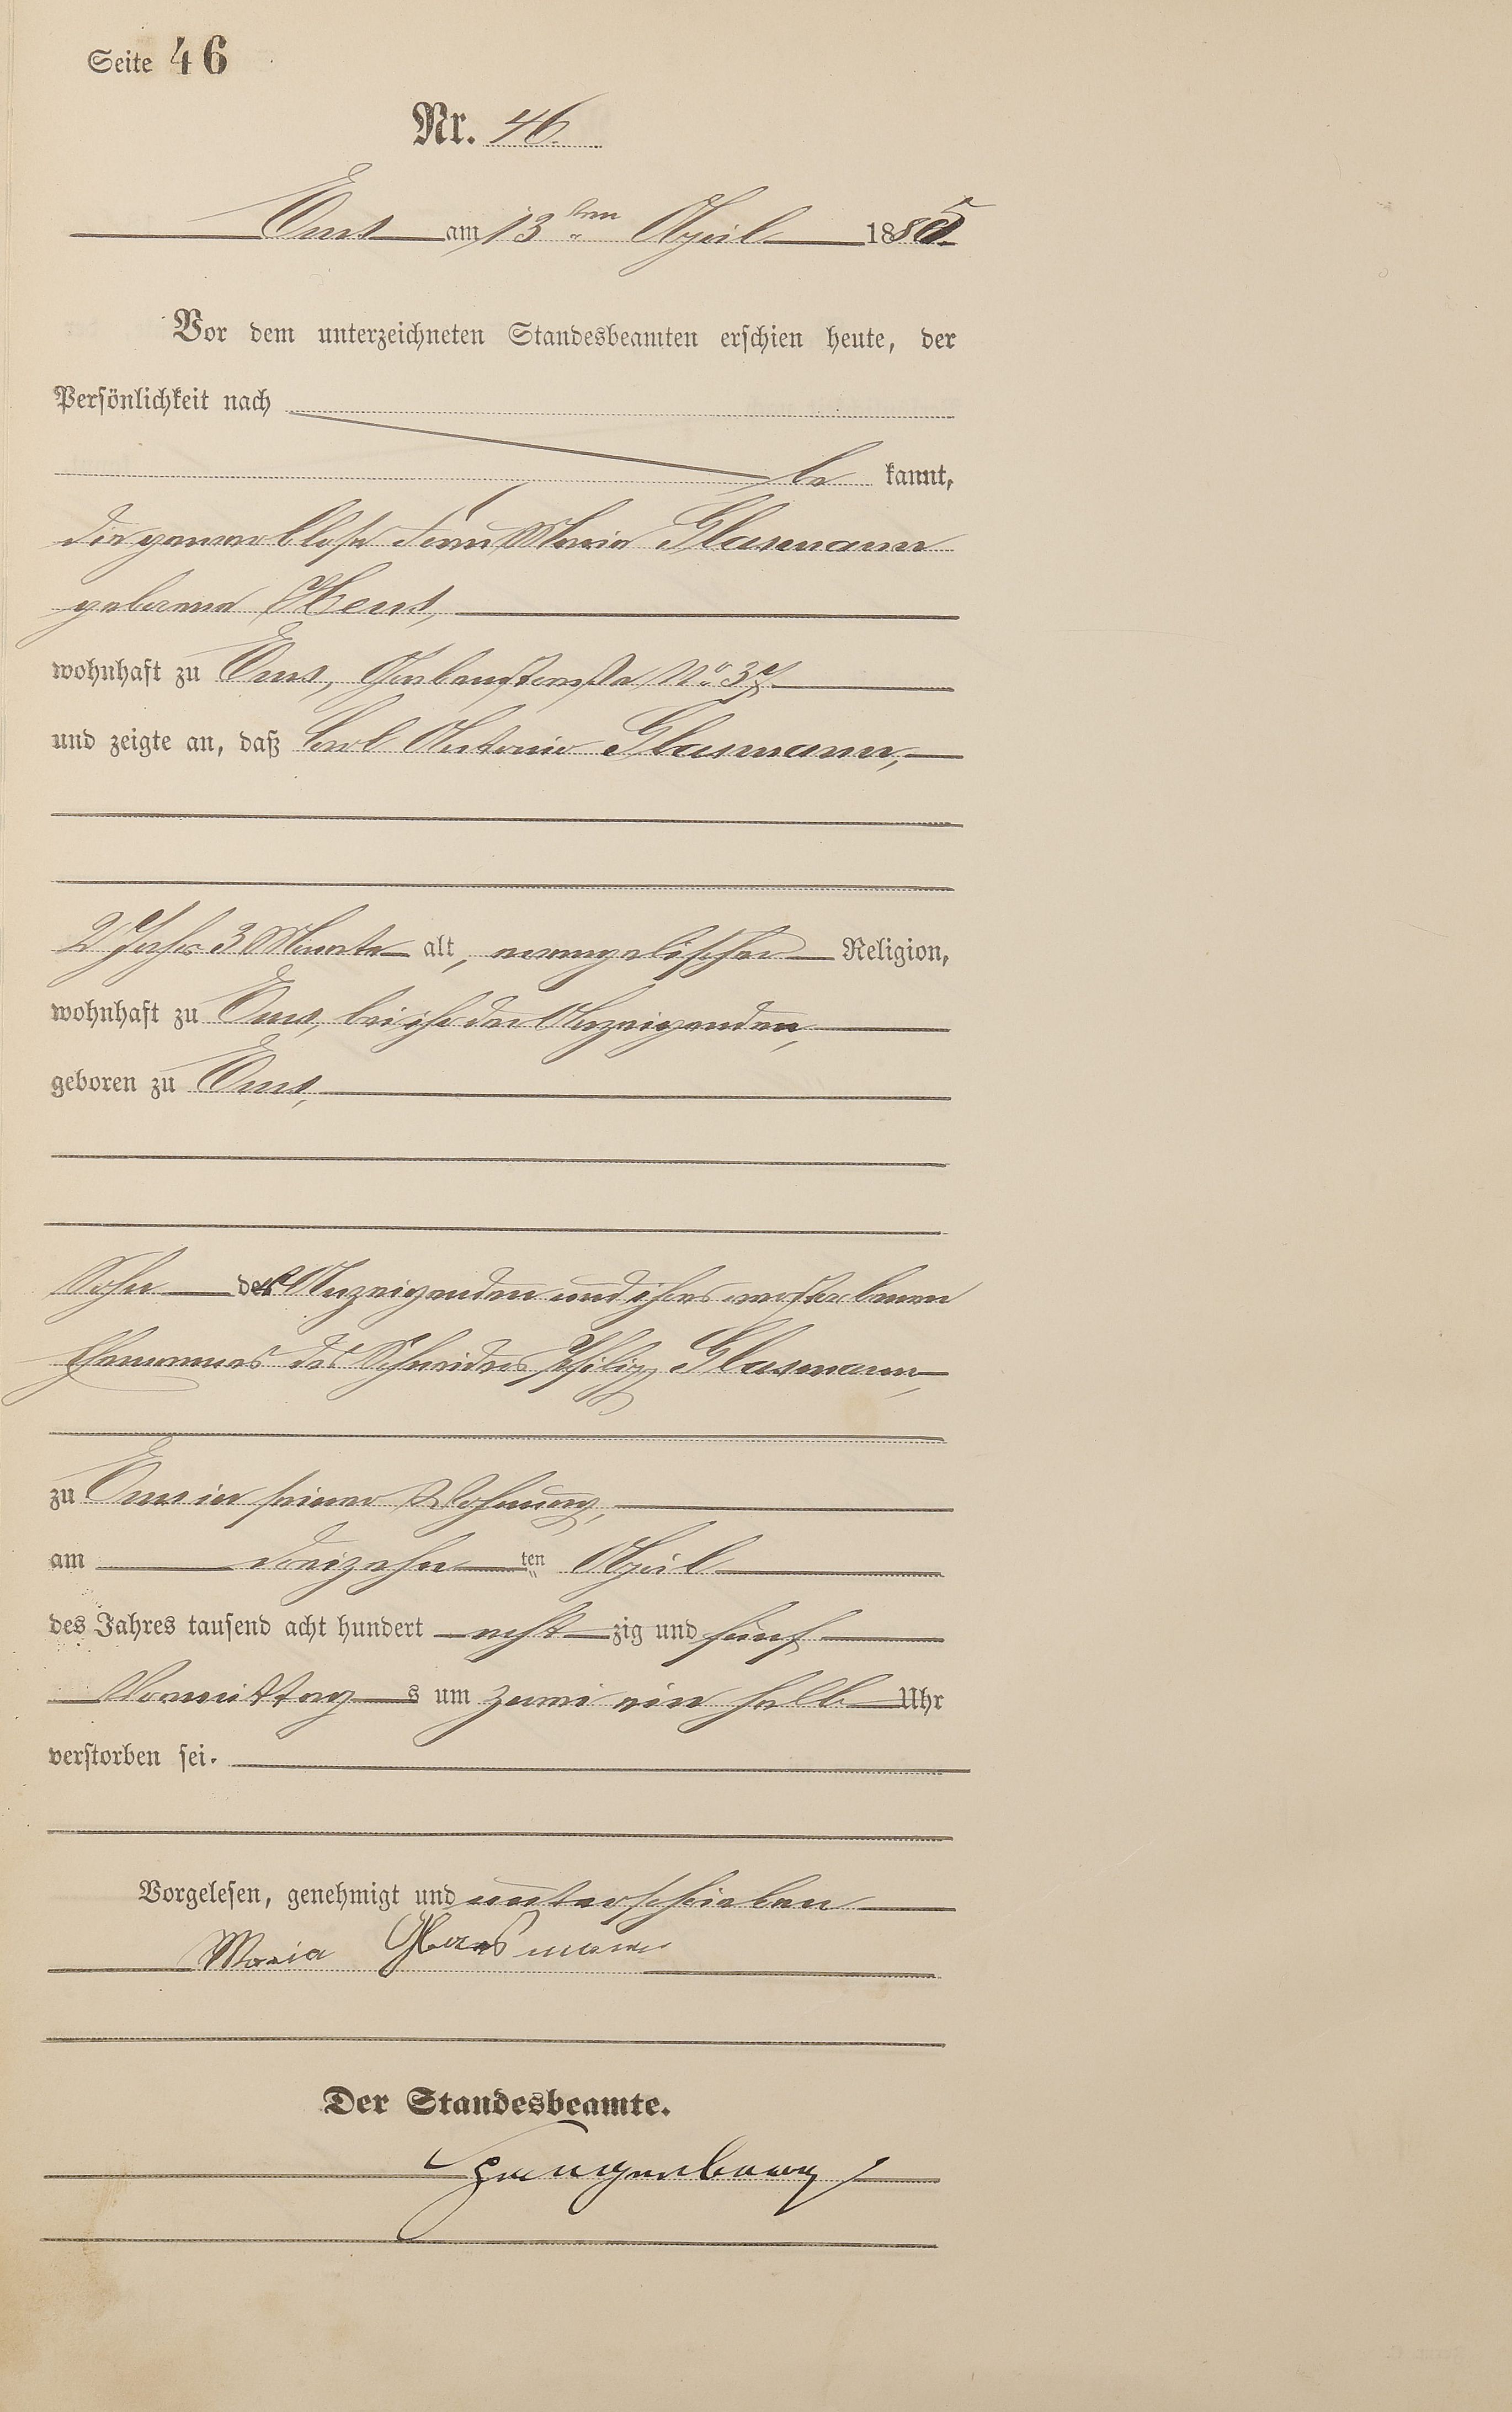 Seite 46
Nr. 46.
Ems am 13ten April 1885.
Vor dem unterzeichneten Standesbeamten erschien heute, der
Persönlichkeit nach
be kannt,
die gewerblose Frau Maria Glasmann
geborene Hens,
wohnhaft zu Ems, No 37
und zeigte an, daß Carl Antonio Glasmann,
2 Jahre 3 Monate alt, evangelischer Religion,
wohnhaft zu Ems, bei ihr der Anzeigenden,
geboren zu Ems,
Sohn der Anzeigenden und ihres verstorbenen
Ehemannes des Schneiders Philipp Glasmann,
zu Ems in seiner Wohnung,
am dreizehn ten April
des Jahres tausend acht hundert acht zig und fünf
Vormittag s um zwei ein halb Uhr
verstorben sei.
Vorgelesen, genehmigt und unterschrieben
Maria Glasmann
Der Standesbeamte.